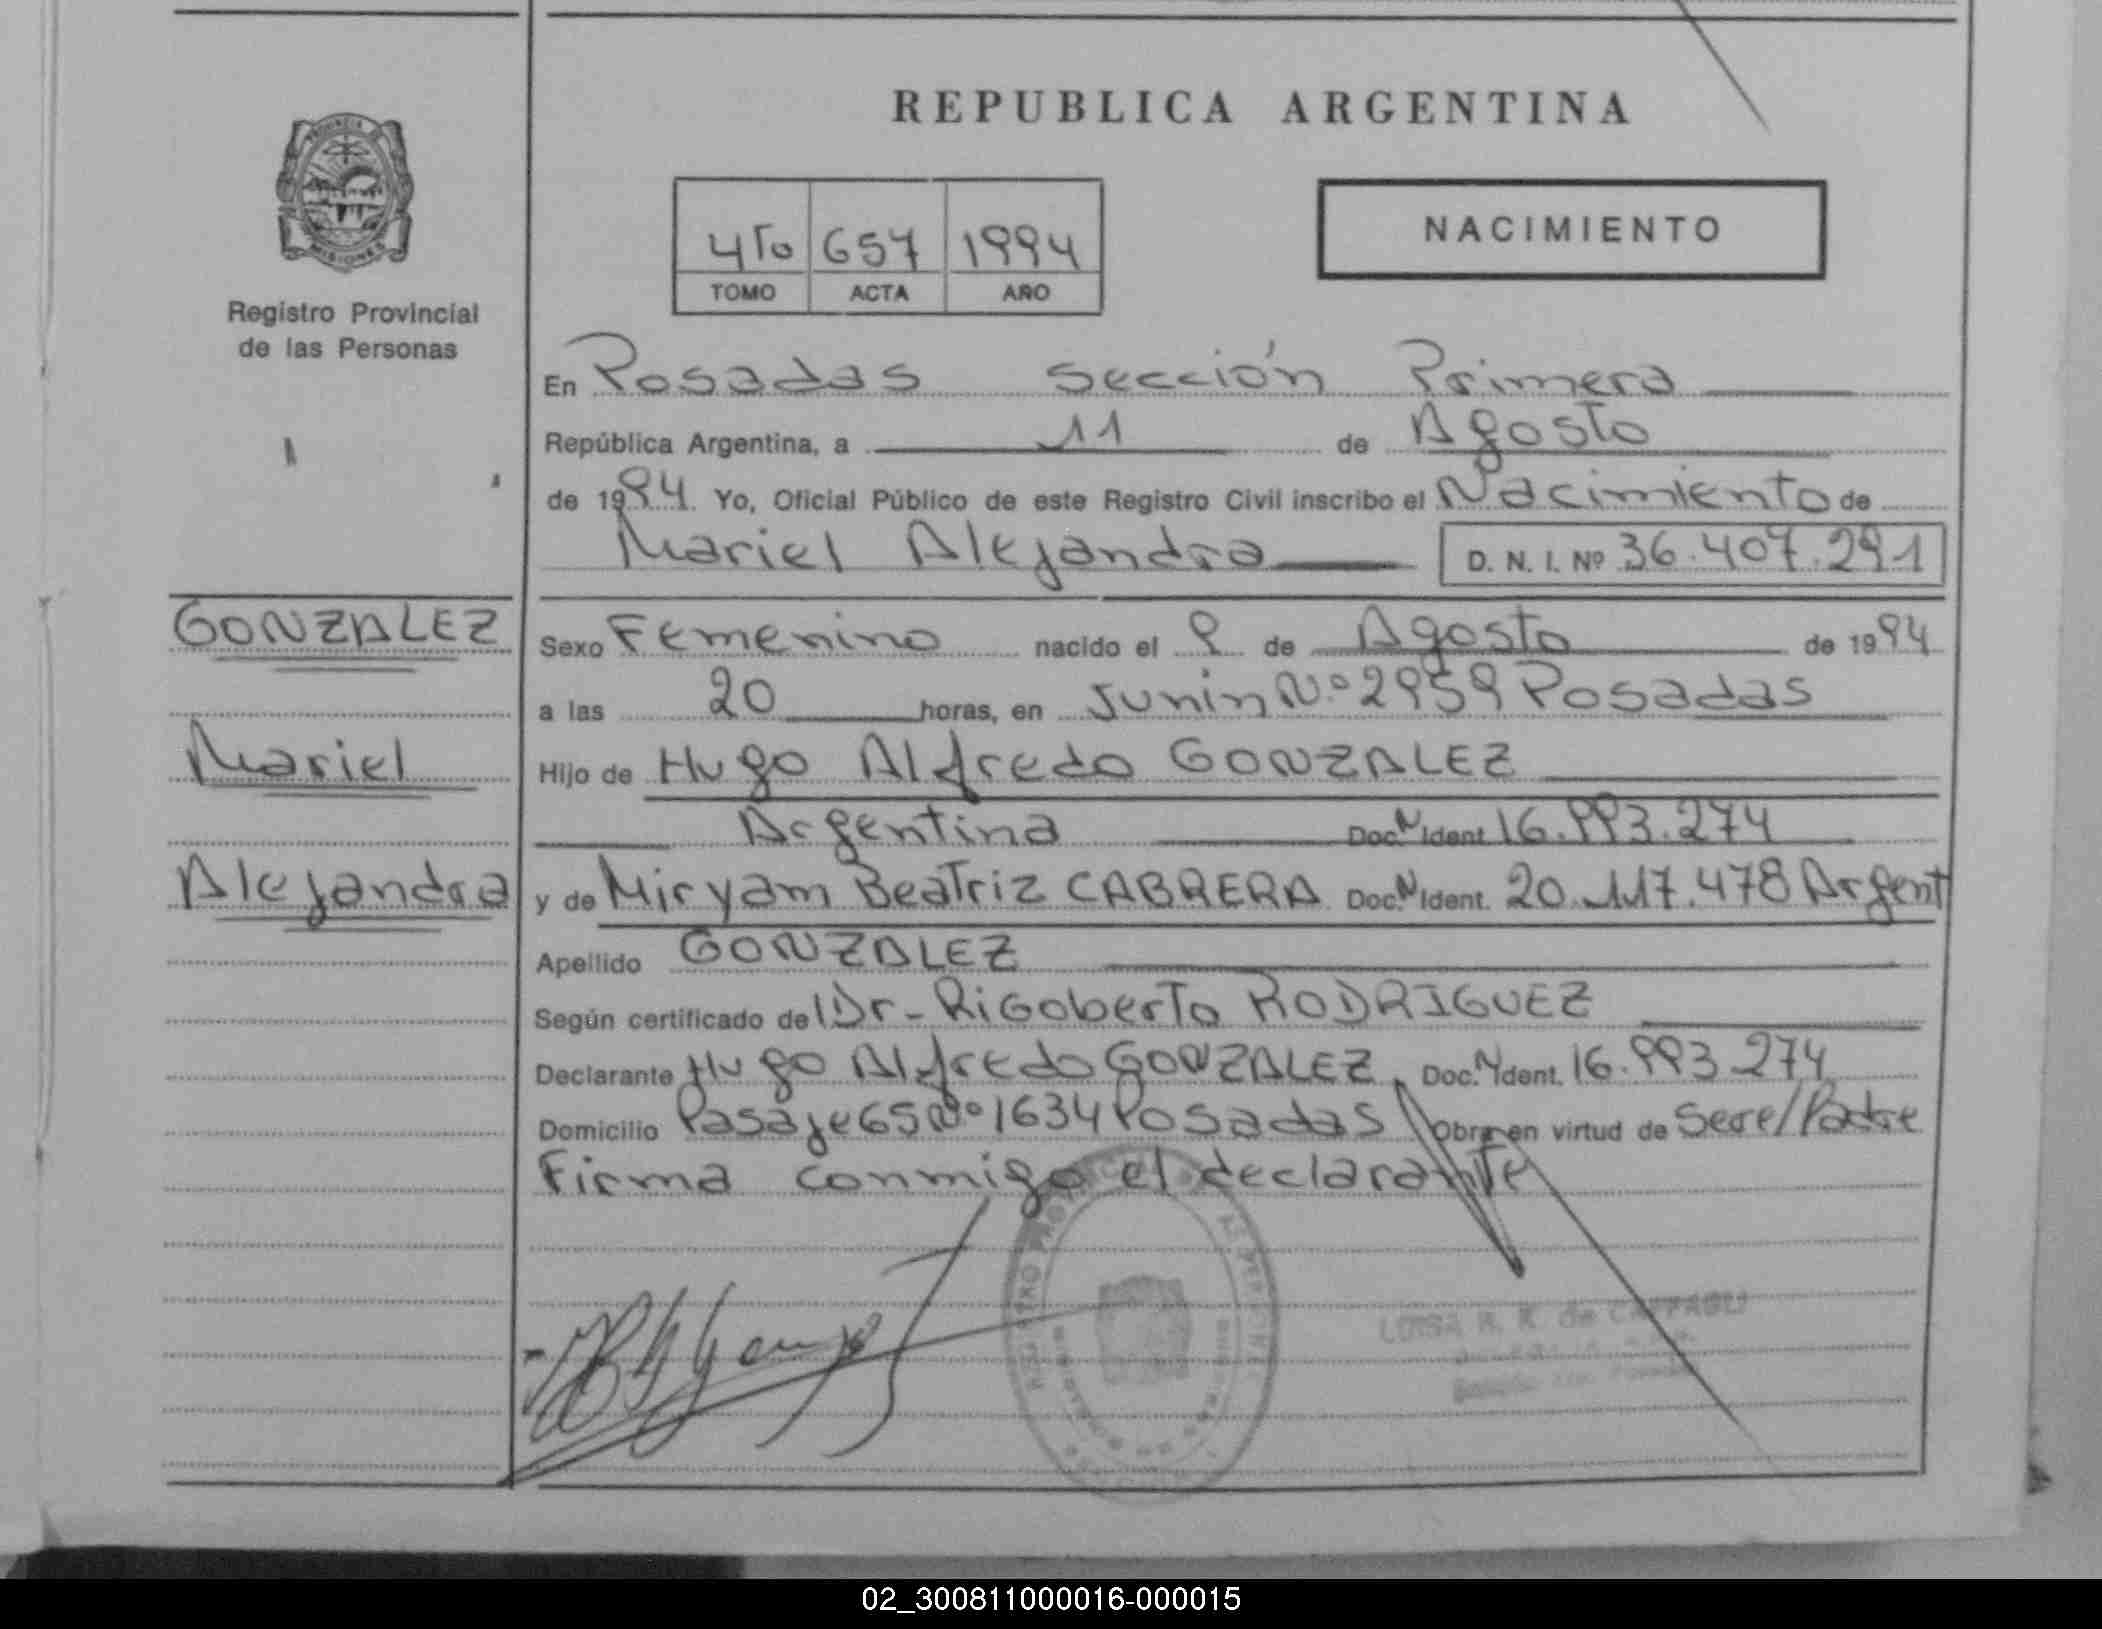 REPUBLICA ARGENTINA
PROVINCIA DE
MISIONES
Registro Provincial
de las Personas
4To 657 1994
TOMO ACTA AÑO
NACIMIENTO
En Posadas Sección Primera
República Argentina, a 11 de Agosto
de 1994. Yo, Oficial Público de este Registro Civil inscribo el Nacimiento de
Mariel Alejandra D. N. I. Nº 36.407.291
GONZALEZ
Mariel
Alejandra
Sexo Femenino nacido el 9 de Agosto de 1994
a las 20 horas, en Junin N.º 2959 Posadas
Hijo de Hugo Alfredo GONZALEZ
Argentina Doc. N Ident. 16.993.274
y de Miryam Beatriz CABRERA Doc. N Ident. 20.117.478 Argent
Apellido GONZALEZ
Según certificado del Dr - Rigoberto RODRIGUEZ
Declarante Hugo Alfredo GONZALEZ Doc. N Ident. 16.993.274
Domicilio Pasaje 65 Nº 1634 Posadas Obra en virtud de Sere/Padre
Firma conmigo el declarante
LUISA R. R. de
02_300811000016-000015